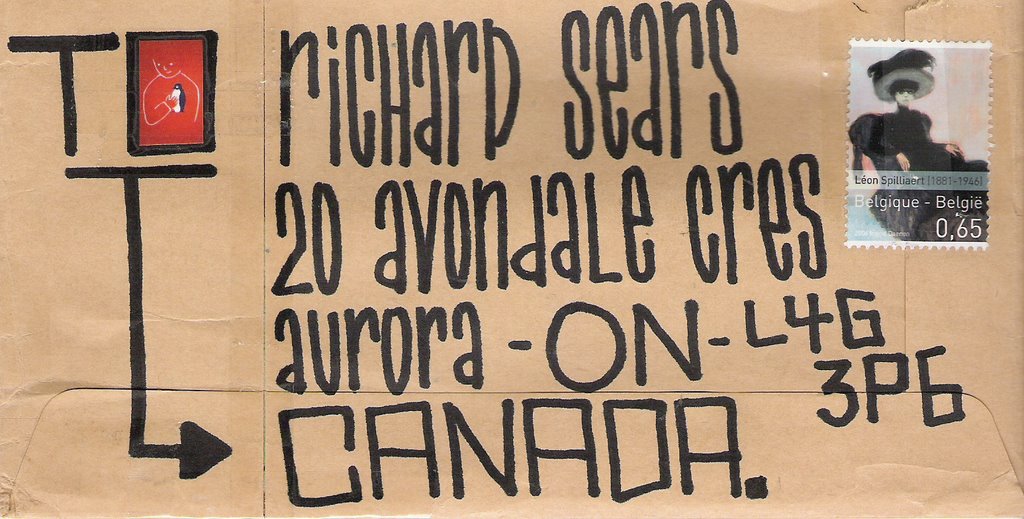 TO
richard sears
20 avondale cres
aurora - ON - L4G
3P6
CANADA.
Léon Spilliaert (1881-1946)
Belgique - België
0,65